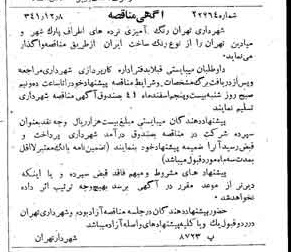 شماره ۲۲۷۱۴ آگهی مناقصه ۳۴۱/۱۲/۸
شهرداری تهران رنگ آمیزی نرده های اطراف پارک شهر و
میادین تهران را از نوع رنگ ساخت ایران ازطریق مناقصه واگذار
می نماید.
داوطلبان میبایستی قبلا بدفتر اداره کارپردازی شهرداری مراجعه
وپس ازدریافت برگ مشخصات وشرایط مناقصه پیشنهاد خودرا تا ساعت ده ونیم
صبح روز شنبه بیست وپنجم اسفندماه ۴۱ بصندوق آگهی مناقصه شهرداری
تسلیم نمایند
پیشنهاددهندگان میبایستی مبلغ بیست هزار ریال وجه نقد بعنوان
سپرده شرکت در مناقصه بصندوق درآمد شهرداری پرداخت و
قبض رسید آنرا ضمیمه پیشنهاد خود بنمایند (تضمین نامه بانک معتبر لااقل
بمدت سه ماه مورد قبول میباشد)
پیشنهاد های مشروط و مبهم فاقد قبض سپرده و یا اینکه
دیرتر از موعد مقرر در آگهی برسد بهیچوجه ترتیب اثر داده
نخواهد شد.
حضور پیشنهاد دهندگان در جلسه مناقصه آزاد بوده و شهرداری تهران
در رد و قبول یک و یا کلیه پیشنهادهای واصله آزاد میباشد
پ ۸۷۲۳ شهردار تهران